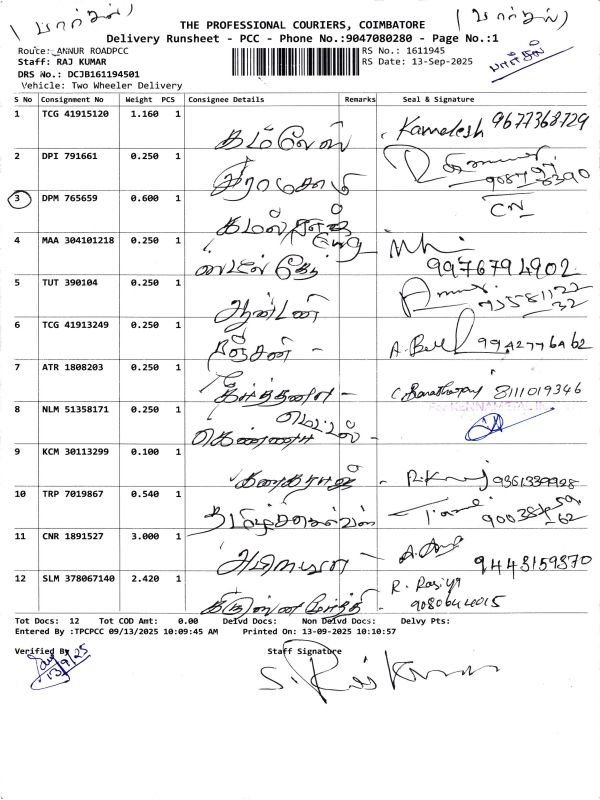 (பார்சல்)
(பார்சல்)
THE PROFESSIONAL COURIERS, COIMBATORE
Delivery Runsheet - PCC - Phone No.:9047080280 - Page No.:1
பார்சல்
Route: ANNUR ROADPCC
RS No.: 1611945
Staff: RAJ KUMAR
RS Date: 13-Sep-2025
DRS No.: DCJB161194501
Vehicle: Two Wheeler Delivery
S No Consignment No Weight PCS Consignee Details Remarks Seal & Signature
1 TCG 41915120 1.160 1 கமலேஷ் Kamalesh 9677368729
2 DPI 791661 0.250 1
3 DPM 765659 0.600 1 CN
4 MAA 304101218 0.250 1 9976794902
5 TUT 390104 0.250 1 ஆண்டனி
6 TCG 41913249 0.250 1 ரஞ்சன் - 9942776962
7 ATR 1808203 0.250 1 கீர்த்தனா - 8111019346
8 NLM 51358171 0.250 1 கென்னா மெட்டல் -
9 KCM 30113299 0.100 1 கனகராஜ் - 9361339928
10 TRP 7019867 0.540 1 தமிழ்ச்செல்வன்
11 CNR 1891527 3.000 1 9443159370
12 SLM 378067140 2.420 1 கிருஷ்ணமூர்த்தி R. Rasiya
Tot Docs: 12 Tot COD Amt: 0.00 Delvd Docs: Non Delvd Docs: Delvy Pts:
Entered By :TPCPCC 09/13/2025 10:09:45 AM Printed On: 13-09-2025 10:10:57
Verified By Staff Signature
13/9/25
S. Raj Kumar